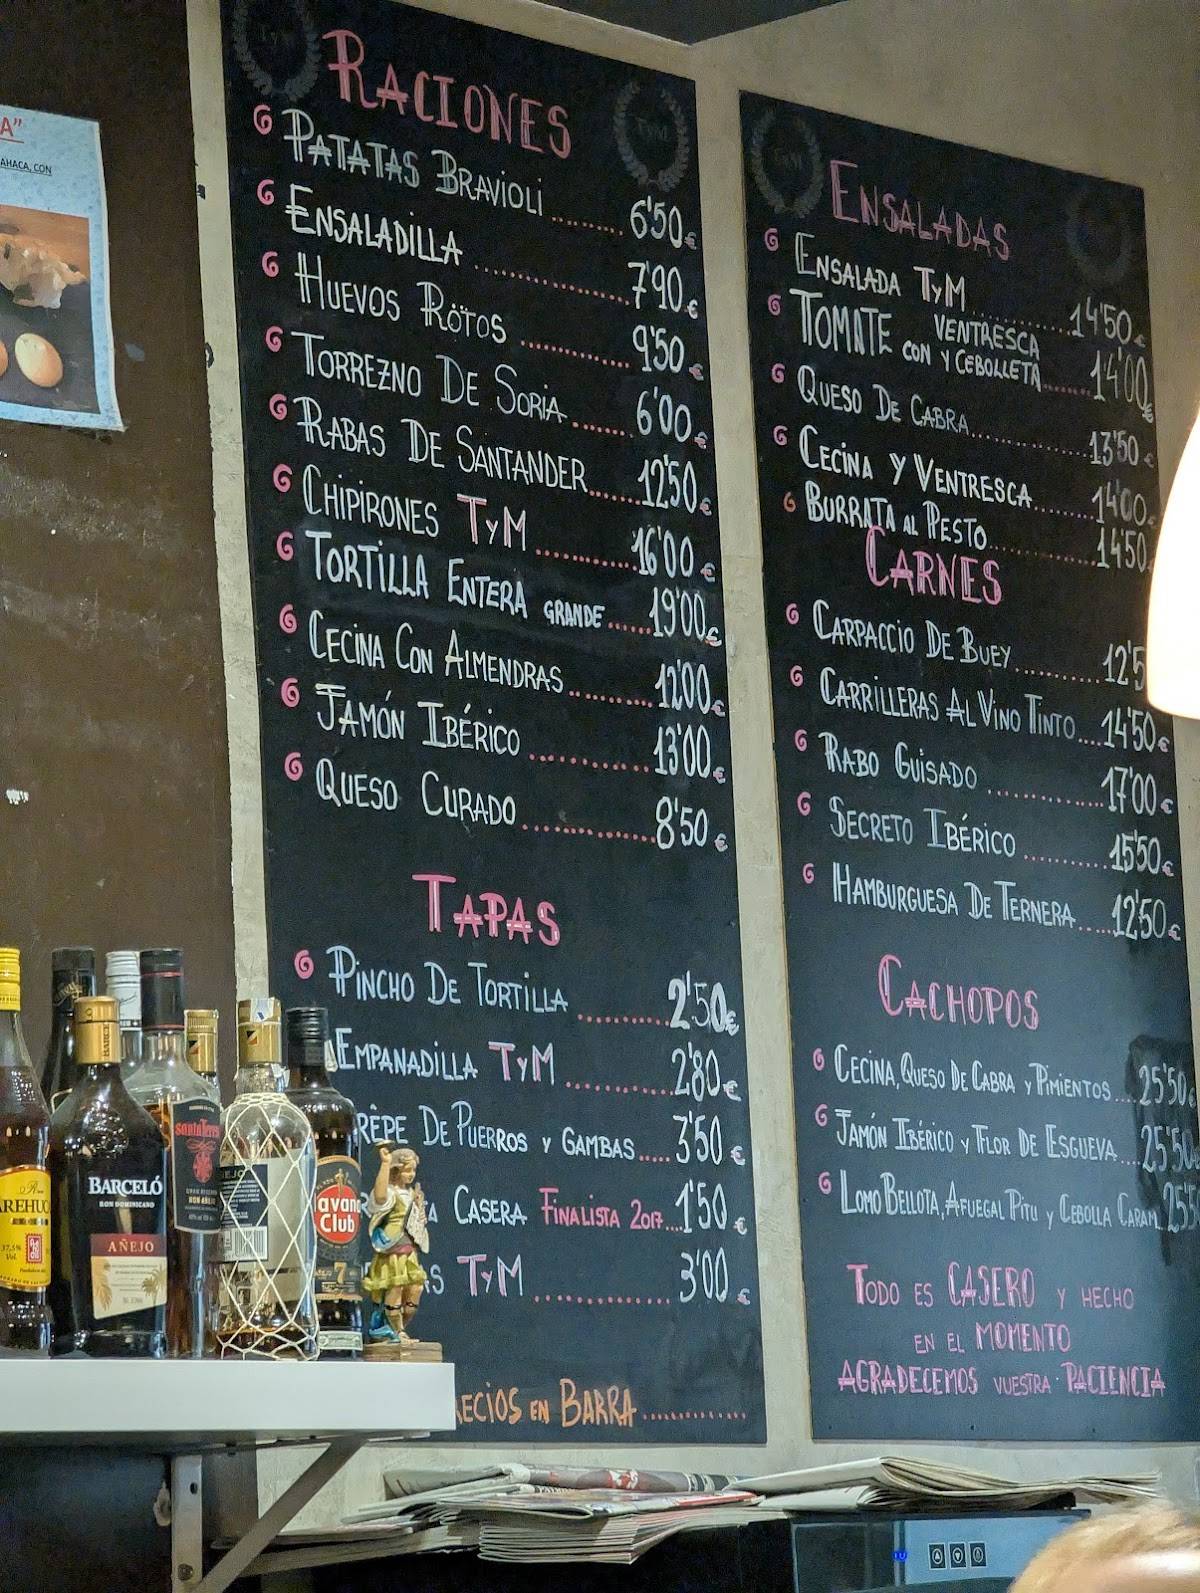 A"
AHACA, CON
RACIONES
PATATAS BRAVIOLI......... 6'50€
ENSALADILLA ............... 7'90€
HUEVOS ROTOS ............... 9'50€
TORREZNO DE SORIA....... 6'00€
RABAS DE SANTANDER...... 12'50€
CHIPIRONES TyM ........... 16'00€
TORTILLA ENTERA GRANDE...... 19'00€
CECINA CON ALMENDRAS........ 12'00€
JAMÓN IBÉRICO ............ 13'00€
QUESO CURADO ............ 8'50€
TAPAS
PINCHO DE TORTILLA .......... 2'50€
EMPANADILLA TyM ........... 2'80€
RÊPE DE PUERROS Y GAMBAS..... 3'50€
CASERA FINALISTA 2017... 1'50€
AS TyM ............... 3'00€
RECIOS EN BARRA ............
ENSALADAS
ENSALADA TyM............ 14'50€
TOMATE CON VENTRESCA Y CEBOLLETA...... 14'00€
QUESO DE CABRA............. 13'50€
CECINA Y VENTRESCA........ 14'00€
BURRATA AL PESTO............ 14'50
CARNES
CARPACCIO DE BUEY........... 12'5
CARRILLERAS AL VINO TINTO.... 14'50€
RABO GUISADO .............. 17'00€
SECRETO IBÉRICO ........... 15'50€
HAMBURGUESA DE TERNERA..... 12'50€
CACHOPOS
CECINA, QUESO DE CABRA Y PIMIENTOS.... 25'50€
JAMÓN IBÉRICO Y FLOR DE ESGUEVA.... 25'50
LOMO BELLOTA, AFUEGAL PITU Y CEBOLLA CARAM.. 25'5
TODO ES CASERO Y HECHO
EN EL MOMENTO
AGRADECEMOS VUESTRA PACIENCIA
AREHUC
37,5%
Vol.
BARCELÓ
RON DOMINICANO
AÑEJO
Santa Teresa
Havana
Club
7